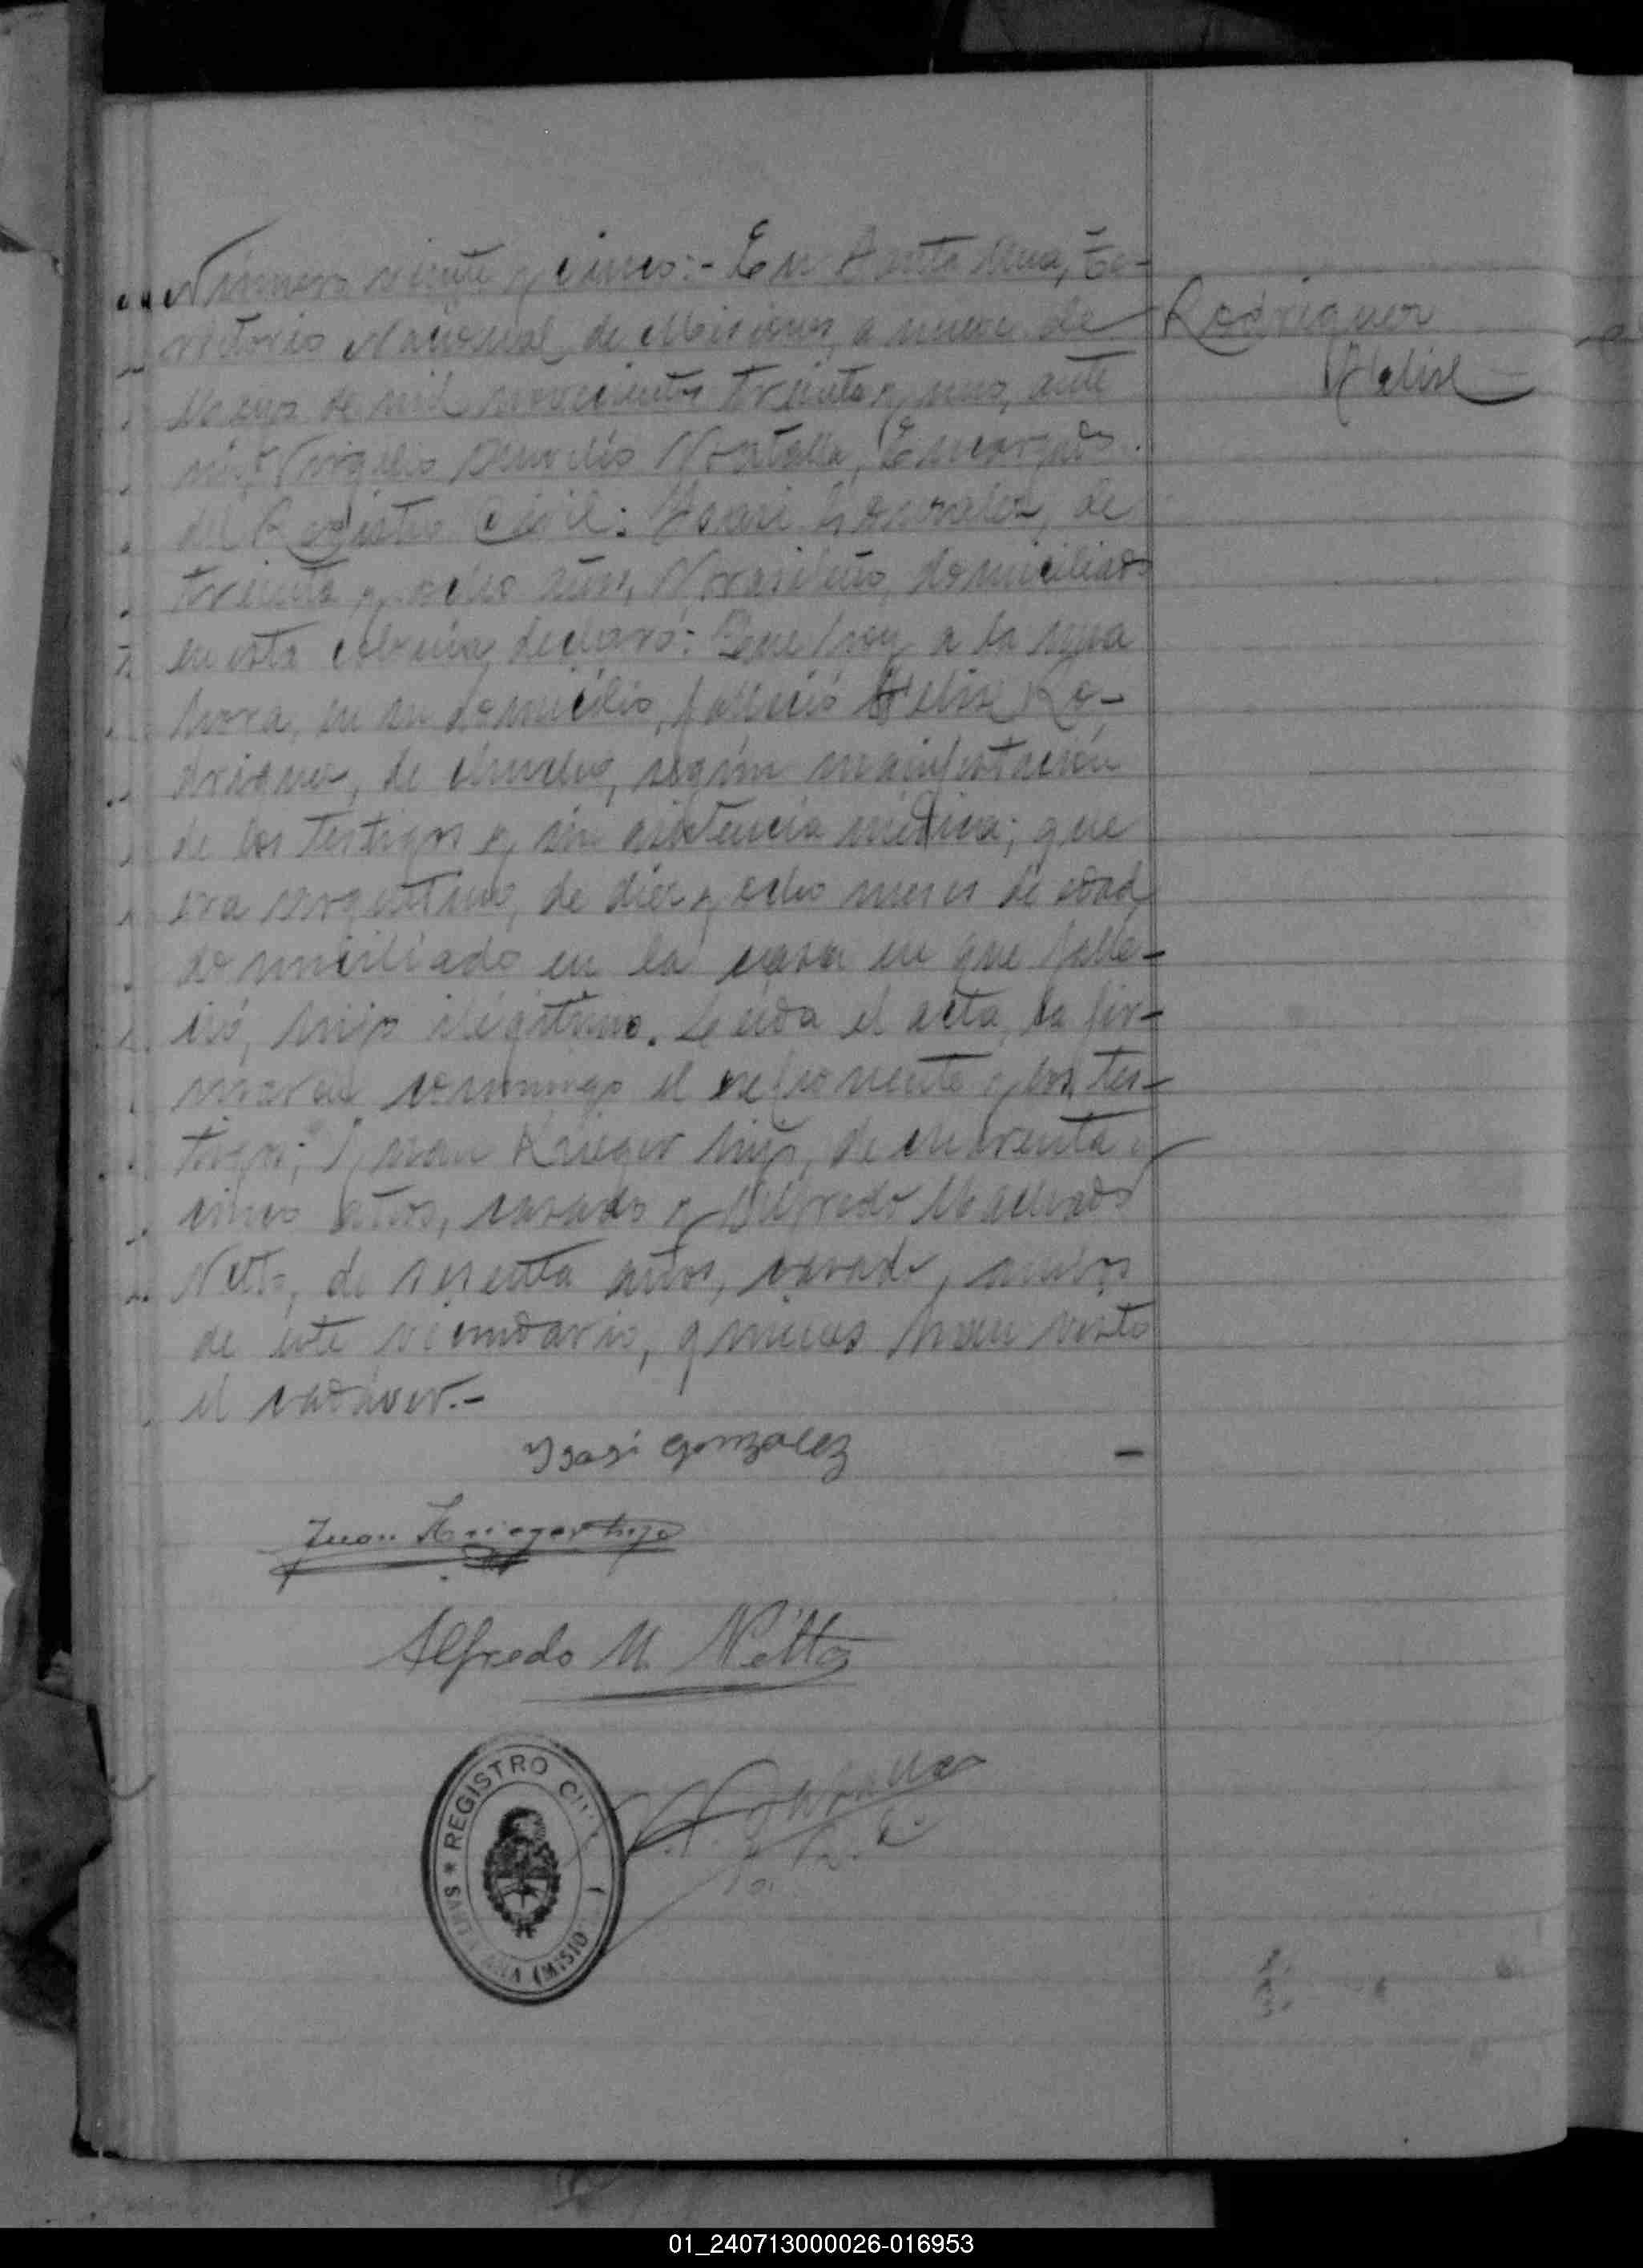 Número veinte y cinco:- En Santa Ana, Te-
rritorio Nacional de Misiones, a nueve de
Mayo de mil novecientos treinta y uno, ante
mi, Virgilio, Encargado
del Registro Civil: Ysasi Gonzalez, de
treinta y ocho años, Brasileño, domiciliado
en esta colonia, declaró: Que hoy a la una
hora, en su domicilio, falleció Felix Ro-
driguez, de, según manifestación
de los testigos y sin asistencia médica; que
era argentino, de diez y ocho meses de edad
domiciliado en la casa en que falle-
ció, hijo ilegítimo. Leída el acta, la fir-
maron conmigo el exponente y los tes-
tigos; Juan Krieger hijo, de cuarenta y
cinco años, casado y Alfredo Machado
Netto, de sesenta años, casado, ambos
de este vecindario, quienes han visto
el cadáver.-
Rodriguez
Felix
Ysasi Gonzalez
Juan Krieger hijo
Alfredo M. Netto
REGISTRO CIVIL
SANTA ANA (MISIO
01_240713000026-016953